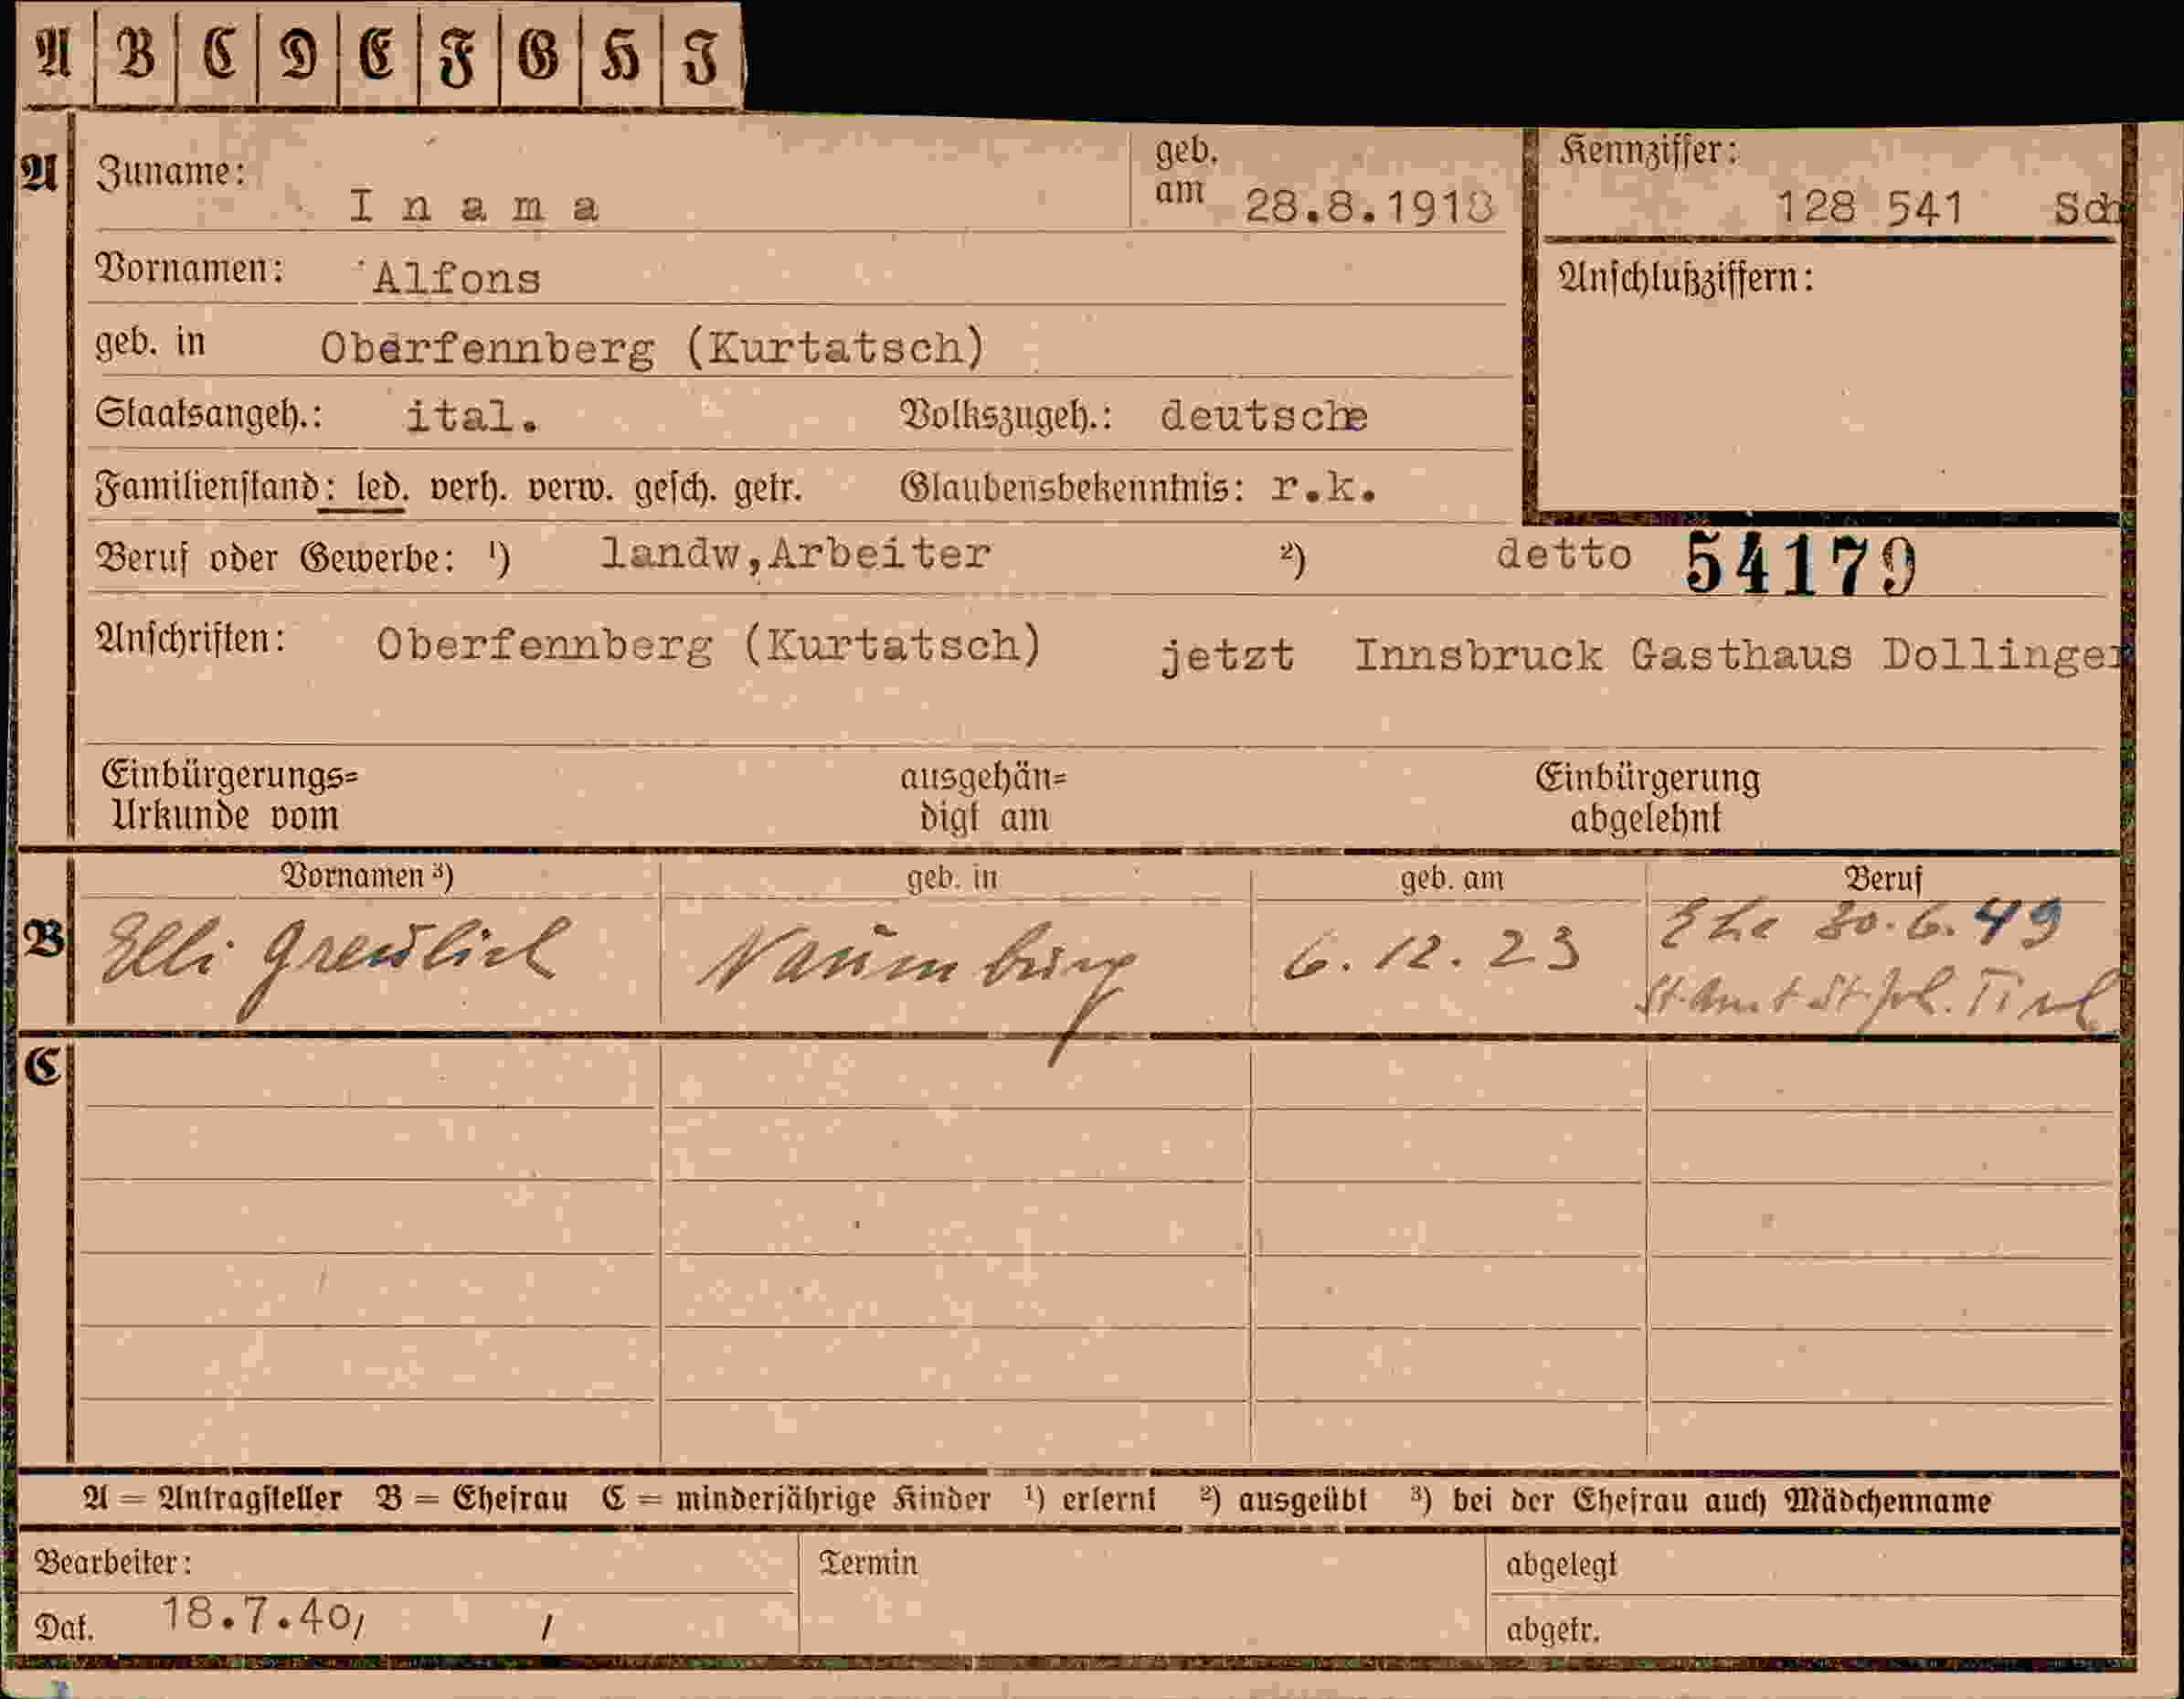 A B C D E F G H I
A Zuname: Inama geb. am 28.8.1918 Kennziffer: 128 541 Sch
Vornamen: Alfons Anschlußziffern:
geb. in Oberfennberg (Kurtatsch)
Staatsangeh.: ital. Volkszugeh.: deutsche
Familienstand: led. verh. verw. gesch. getr. Glaubensbekenntnis: r.k.
Beruf oder Gewerbe: ¹) landw,Arbeiter ²) detto 54179
Anschriften: Oberfennberg (Kurtatsch) jetzt Innsbruck Gasthaus Dollinger
Einbürgerungs= ausgehän= Einbürgerung
Urkunde vom digt am abgelehnt
Vornamen ³) geb. in geb. am Beruf
B Elli Greulich Naumburg 6.12.23 Ehe 30.6.49
St. Amt St. Joh. Tirol
C
A = Antragsteller B = Ehefrau C = minderjährige Kinder ¹) erlernt ²) ausgeübt ³) bei der Ehefrau auch Mädchenname
Bearbeiter: Termin abgelegt
Dat. 18.7.40/ / abgetr.